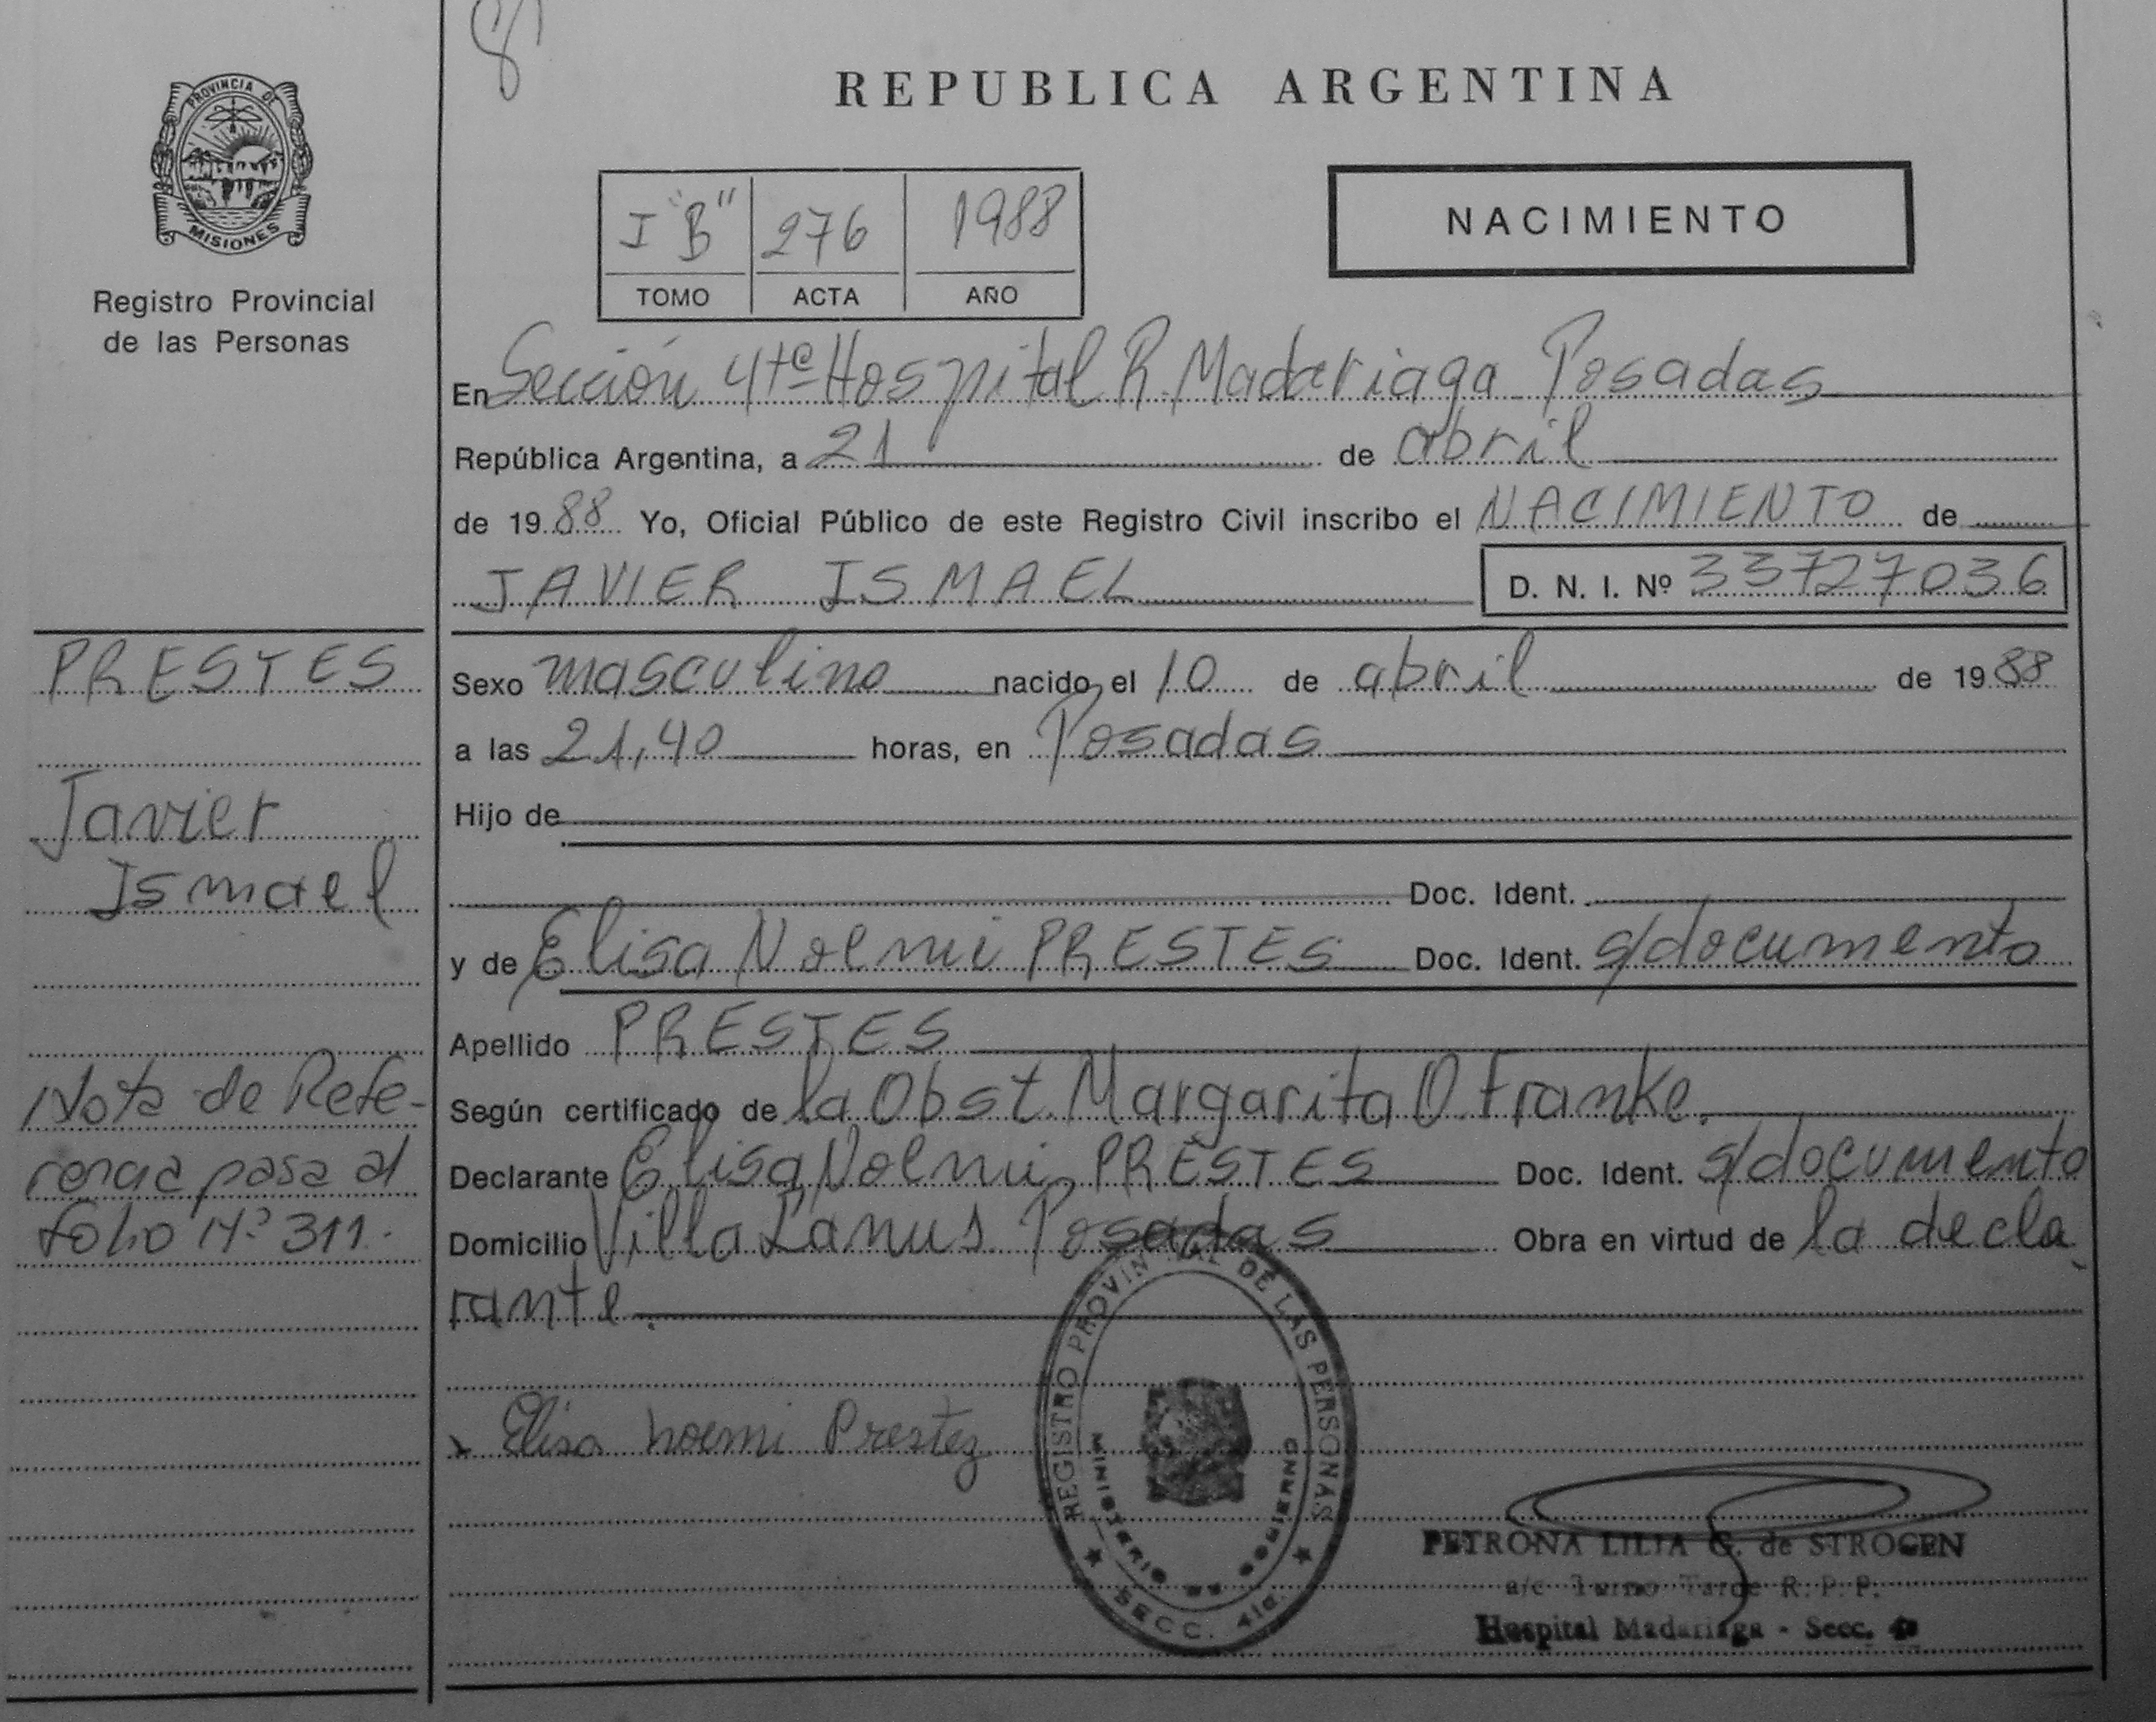 8
PROVINCIA DE
MISIONES
Registro Provincial
de las Personas
REPUBLICA ARGENTINA
I "B" 276 1988
TOMO ACTA AÑO
NACIMIENTO
En Sección 4ta Hospital R. Madariaga Posadas
República Argentina, a 21 de abril
de 1988 Yo, Oficial Público de este Registro Civil inscribo el NACIMIENTO de
JAVIER ISMAEL D. N. I. Nº 33727036
PRESTES
Javier
Ismael
Nota de Refe-
rencia pasa al
folio Nº 311.-
Sexo masculino nacido el 10 de abril de 1988
a las 21,40 horas, en Posadas
Hijo de
Doc. Ident.
y de Elisa Noemi PRESTES Doc. Ident. s/documento
Apellido PRESTES
Según certificado de la Obst. Margarita O Franke.
Declarante Elisa Noemi PRESTES Doc. Ident. s/documento
Domicilio Villa Lanus Posadas Obra en virtud de la decla
rante.
x Elisa noemi Prestez
REGISTRO PROVINCIAL DE LAS PERSONAS
MINISTERIO DE GOBIERNO
SECC. 4ta.
PETRONA LILIA G. de STROGEN
a/c Turno Tarde R. P. P.
Hospital Madariaga - Secc. 4a